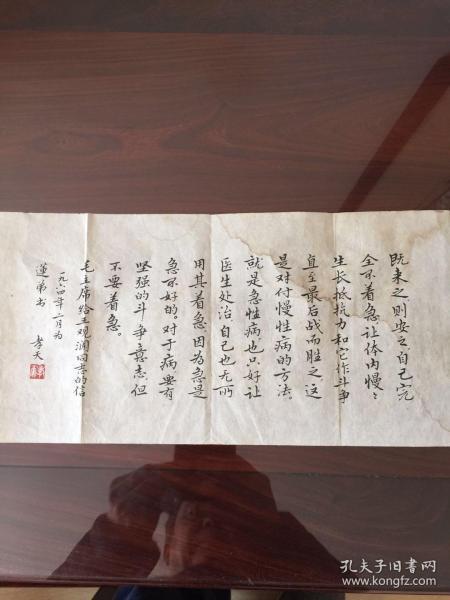 既来之则安之自己完
全不着急让体内慢〻
生长抵抗力和它作斗争
直至最后战而胜之这
是对付慢性病的方法。
就是急性病也只好让
医生处治自己也无所
用其着急因为急是
急不好的。对于病要有
坚强的斗争意志但
不要着急。
毛主席给王观澜同志的信
一九六四年二月为
莲弟书
孝天
孔夫子旧书网
www.kongfz.com